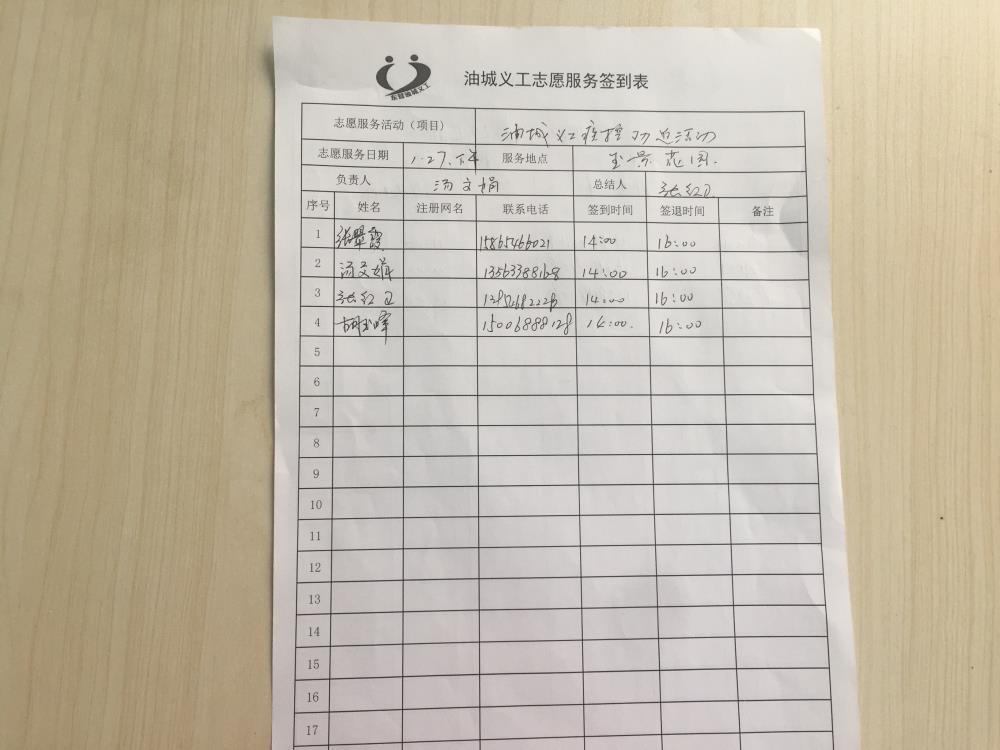 东营油城义工
油城义工志愿服务签到表
志愿服务活动（项目） 油城义工疫控劝返活动
志愿服务日期 1.27.下午 服务地点 玉景花园.
负责人 汤文娟 总结人 张红卫
序号 姓名 注册网名 联系电话 签到时间 签退时间 备注
1 张翠霞 15865466021 14:00 16:00
2 汤文娟 13563388168 14:00 16:00
3 张红卫 14:00 16:00
4 胡玉峰 15006888128 14:00. 16:00
5
6
7
8
9
10
11
12
13
14
15
16
17